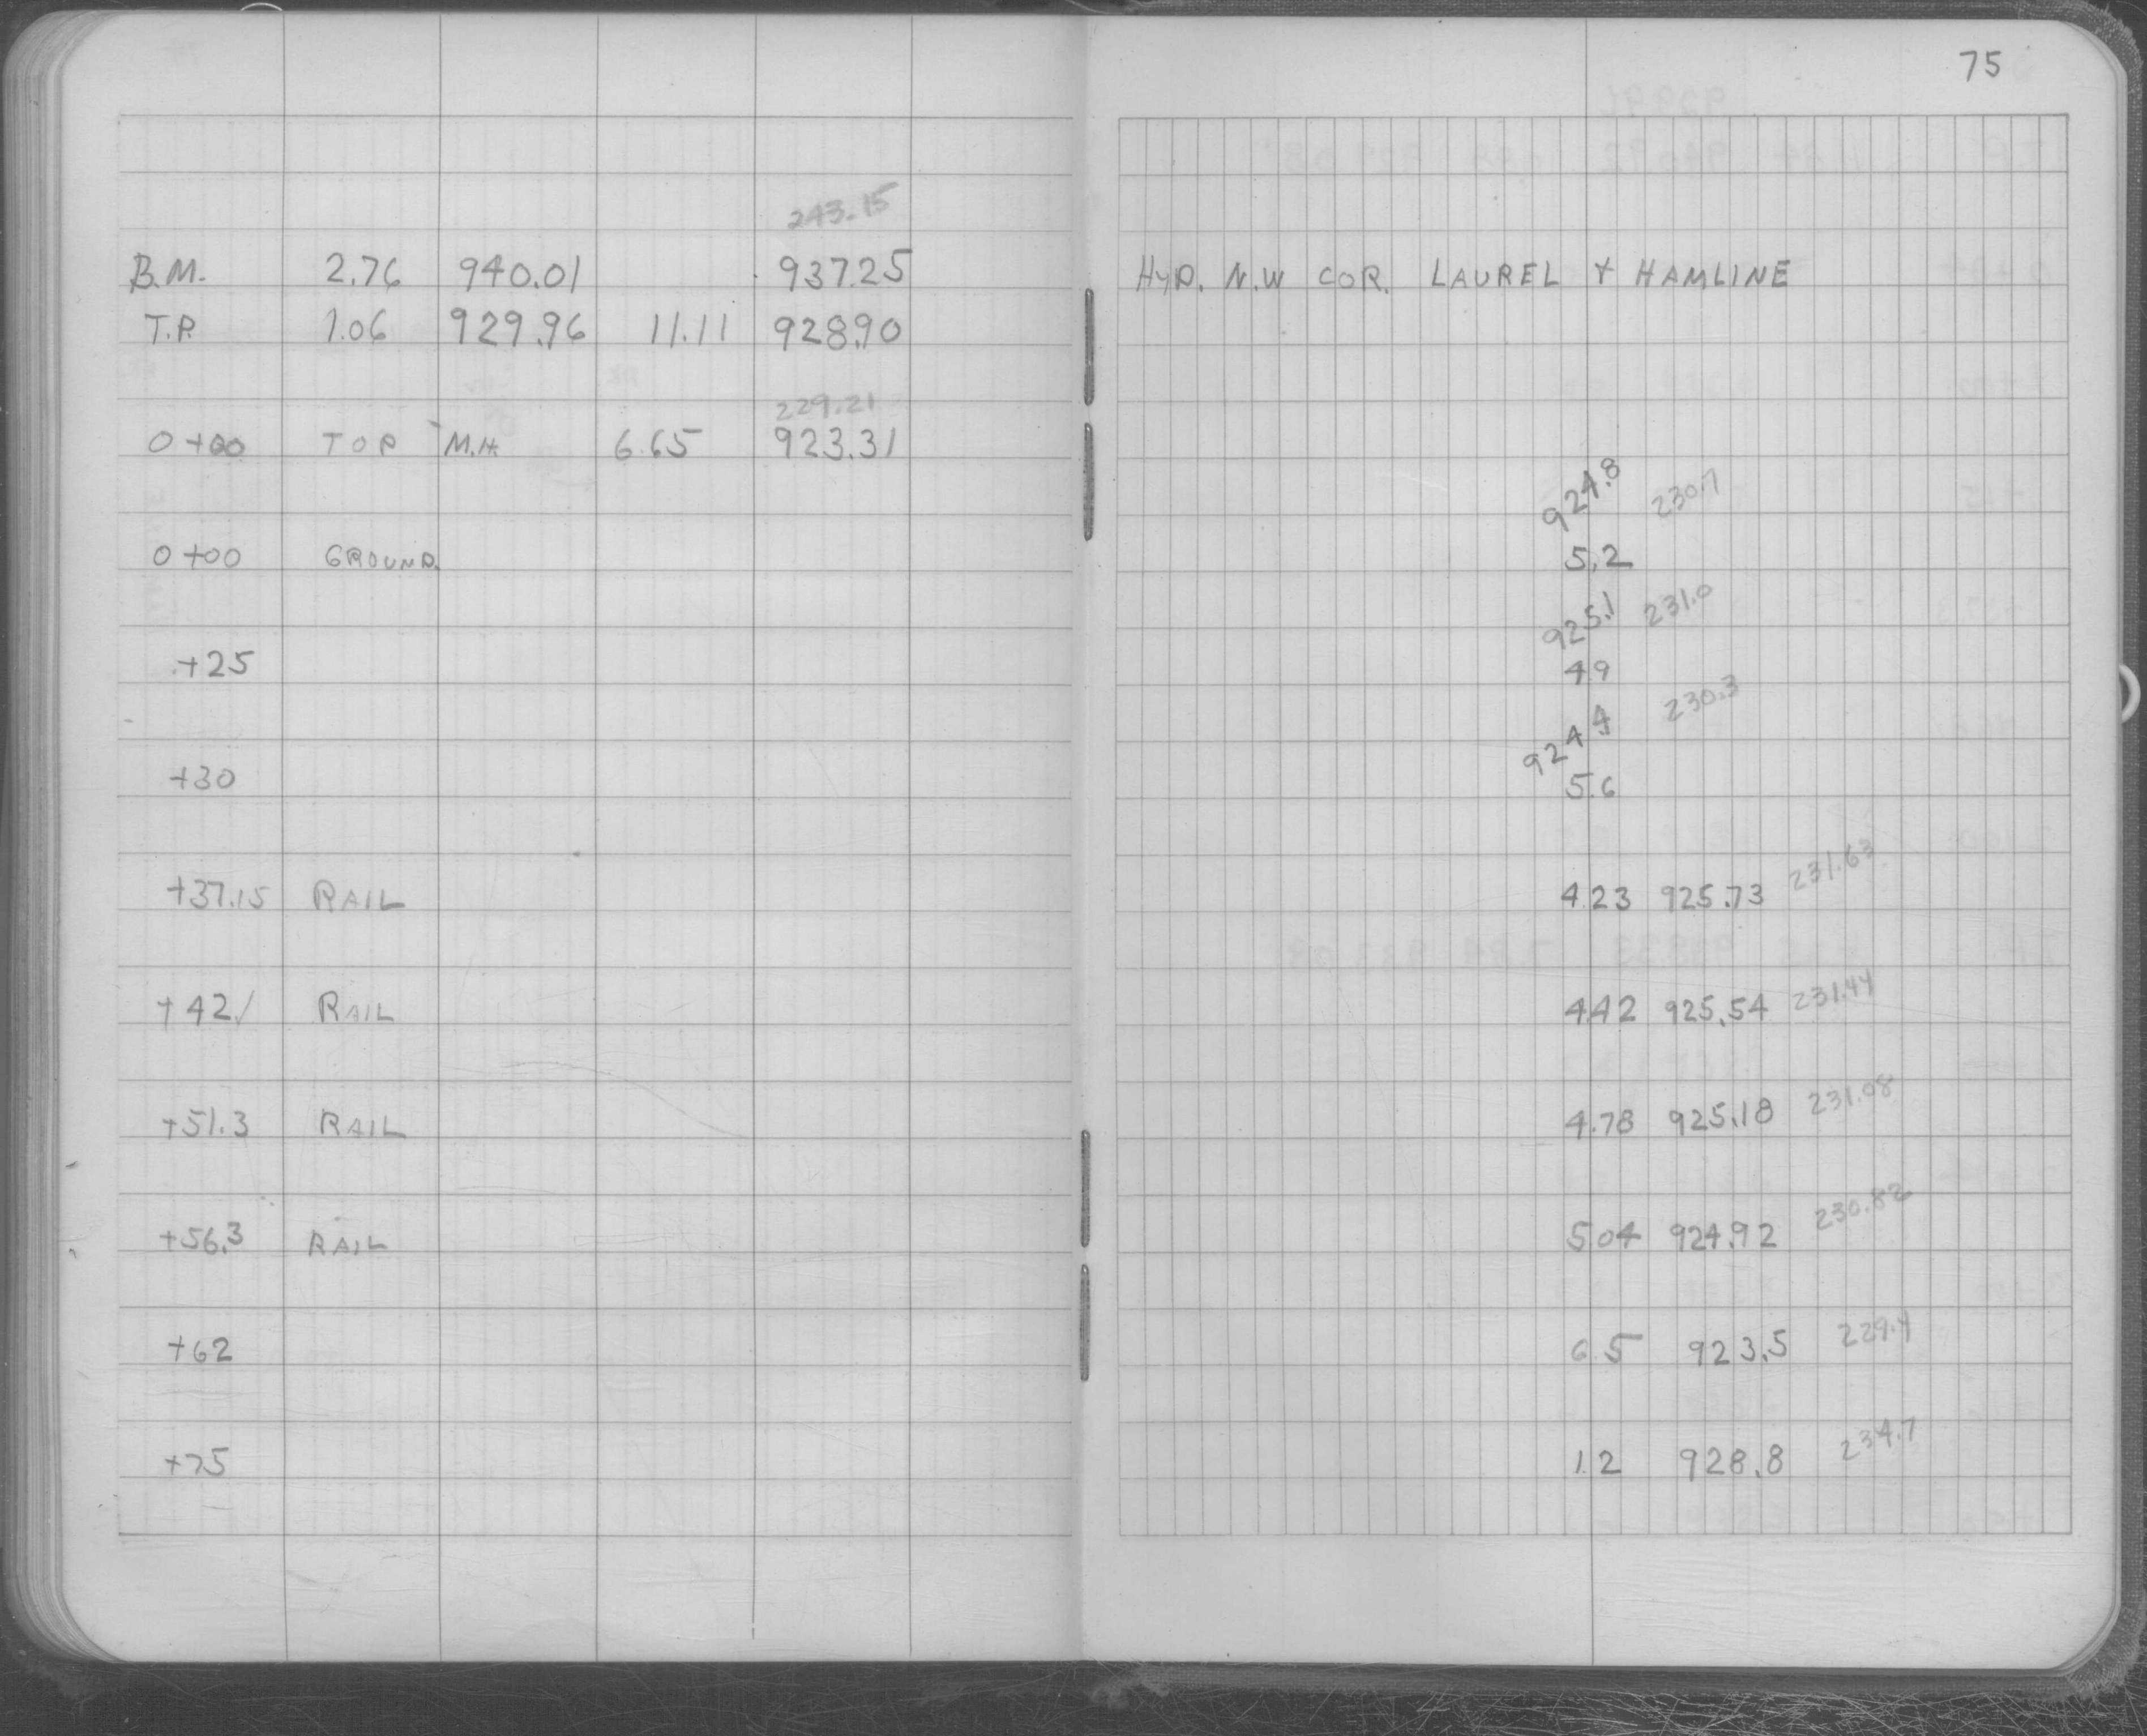 75
243.15
B.M. 2.76 940.01 937.25 HYD. N.W COR. LAUREL & HAMLINE
T.P. 1.06 929.96 11.11 928.90
229.21
0+00 TOP M.H. 6.65 923.31
924.8 230.7
0+00 GROUND. 5.2
925.1 231.0
+25 4.9
924.4 230.3
+30 5.6
+37.15 RAIL 4.23 925.73 231.63
+42.1 RAIL 4.42 925.54 231.44
+51.3 RAIL 4.78 925.18 231.08
+56.3 RAIL 5.04 924.92 230.82
+62 6.5 923.5 229.4
+75 1.2 928.8 234.7